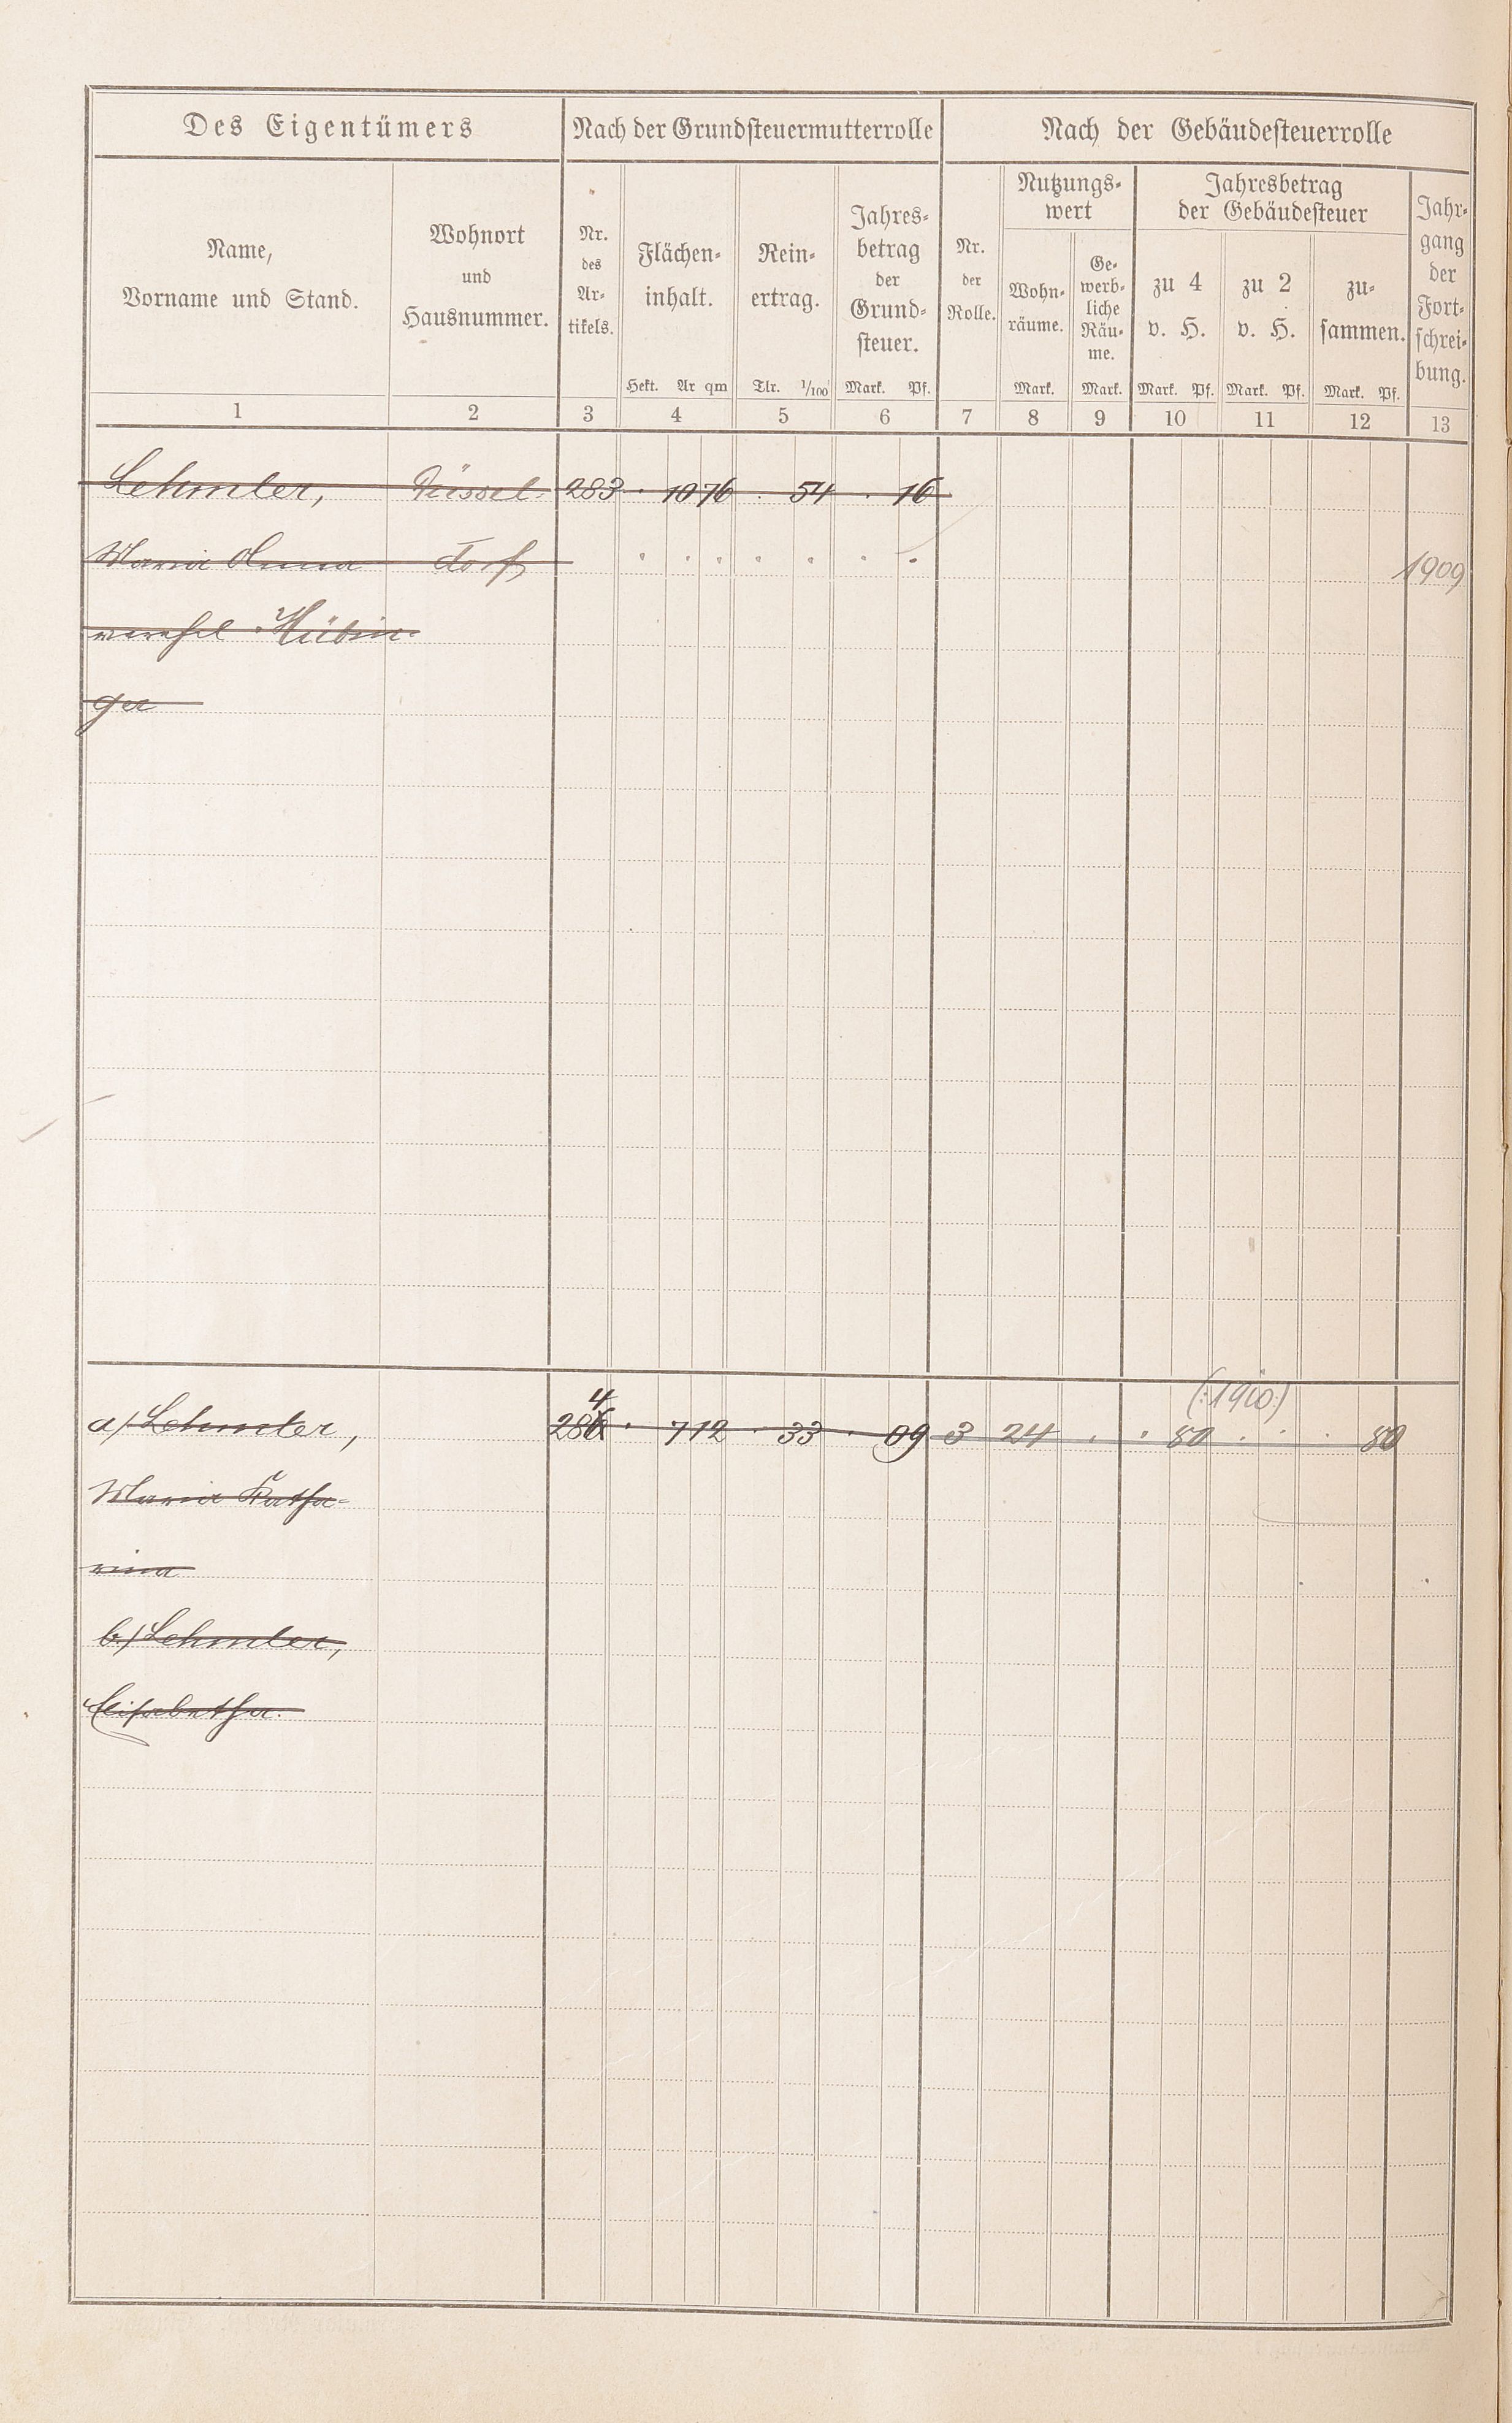 Des Eigentümers Nach der Grundsteuermutterrolle Nach der Gebäudesteuerrolle
Name,
Vorname und Stand.
Wohnort
und
Hausnummer.
Nr.
des
Ar-
tikels.
Flächen-
inhalt.
Hekt. Ar qm
Rein-
ertrag.
Tlr. 1/100
Jahres-
betrag
der
Grund-
steuer.
Mark. Pf.
Nr.
der
Rolle.
Nutzungs-
wert
Wohn-
räume.
Mark.
Ge-
werb-
liche
Räu-
me.
Mark.
Jahresbetrag
der Gebäudesteuer
zu 4
v. H.
Mark. Pf.
zu 2
v. H.
Mark. Pf.
zu-
sammen.
Mark. Pf.
Jahr-
gang
der
Fort-
schrei-
bung.
1 2 3 4 5 6 7 8 9 10 11 12 13
Lehmler, Düssel- 283 . 10 76 . 54 . 16
Maria Anna dorf 1909
verehel. Hübin-
ger
(:1910:)
4
a/ Lehmler, 286 . 7 12 . 33 . 09 3 24 . . 80 . . . 80
Maria Katha-
rina
b/ Lehmler,
Elisabetha.